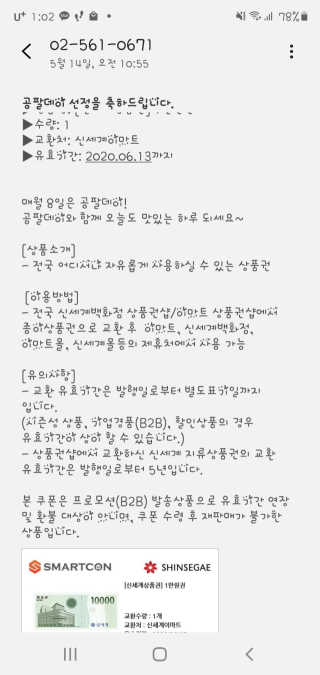 U+ 1:02 78%
02-561-0671
5월 14일, 오전 10:55
공팔데이 선정을 축하드립니다.
▶수량: 1
▶교환처: 신세계이마트
▶유효기간: 2020.06.13까지
매월 8일은 공팔데이!
공팔데이와 함께 오늘도 맛있는 하루 되세요~
[상품소개]
- 전국 어디서나 자유롭게 사용하실 수 있는 상품권
[이용방법]
- 전국 신세계백화점 상품권샵/이마트 상품권샵에서
종이상품권으로 교환 후 이마트, 신세계백화점,
이마트몰, 신세계몰등의 제휴처에서 사용 가능
[유의사항]
- 교환 유효기간은 발행일로부터 별도표기일까지
입니다.
(시즌성 상품, 기업경품(B2B), 할인상품의 경우
유효기간이 상이 할 수 있습니다.)
- 상품권샵에서 교환하신 신세계 지류상품권의 교환
유효기간은 발행일로부터 5년입니다.
본 쿠폰은 프로모션(B2B) 발송상품으로 유효기간 연장
및 환불 대상이 아니며, 쿠폰 수령 후 재판매가 불가한
상품입니다.
SMARTCON SHINSEGAE
[신세계상품권] 1만원권
10000
교환수량 : 1개
교환처 : 신세계이마트